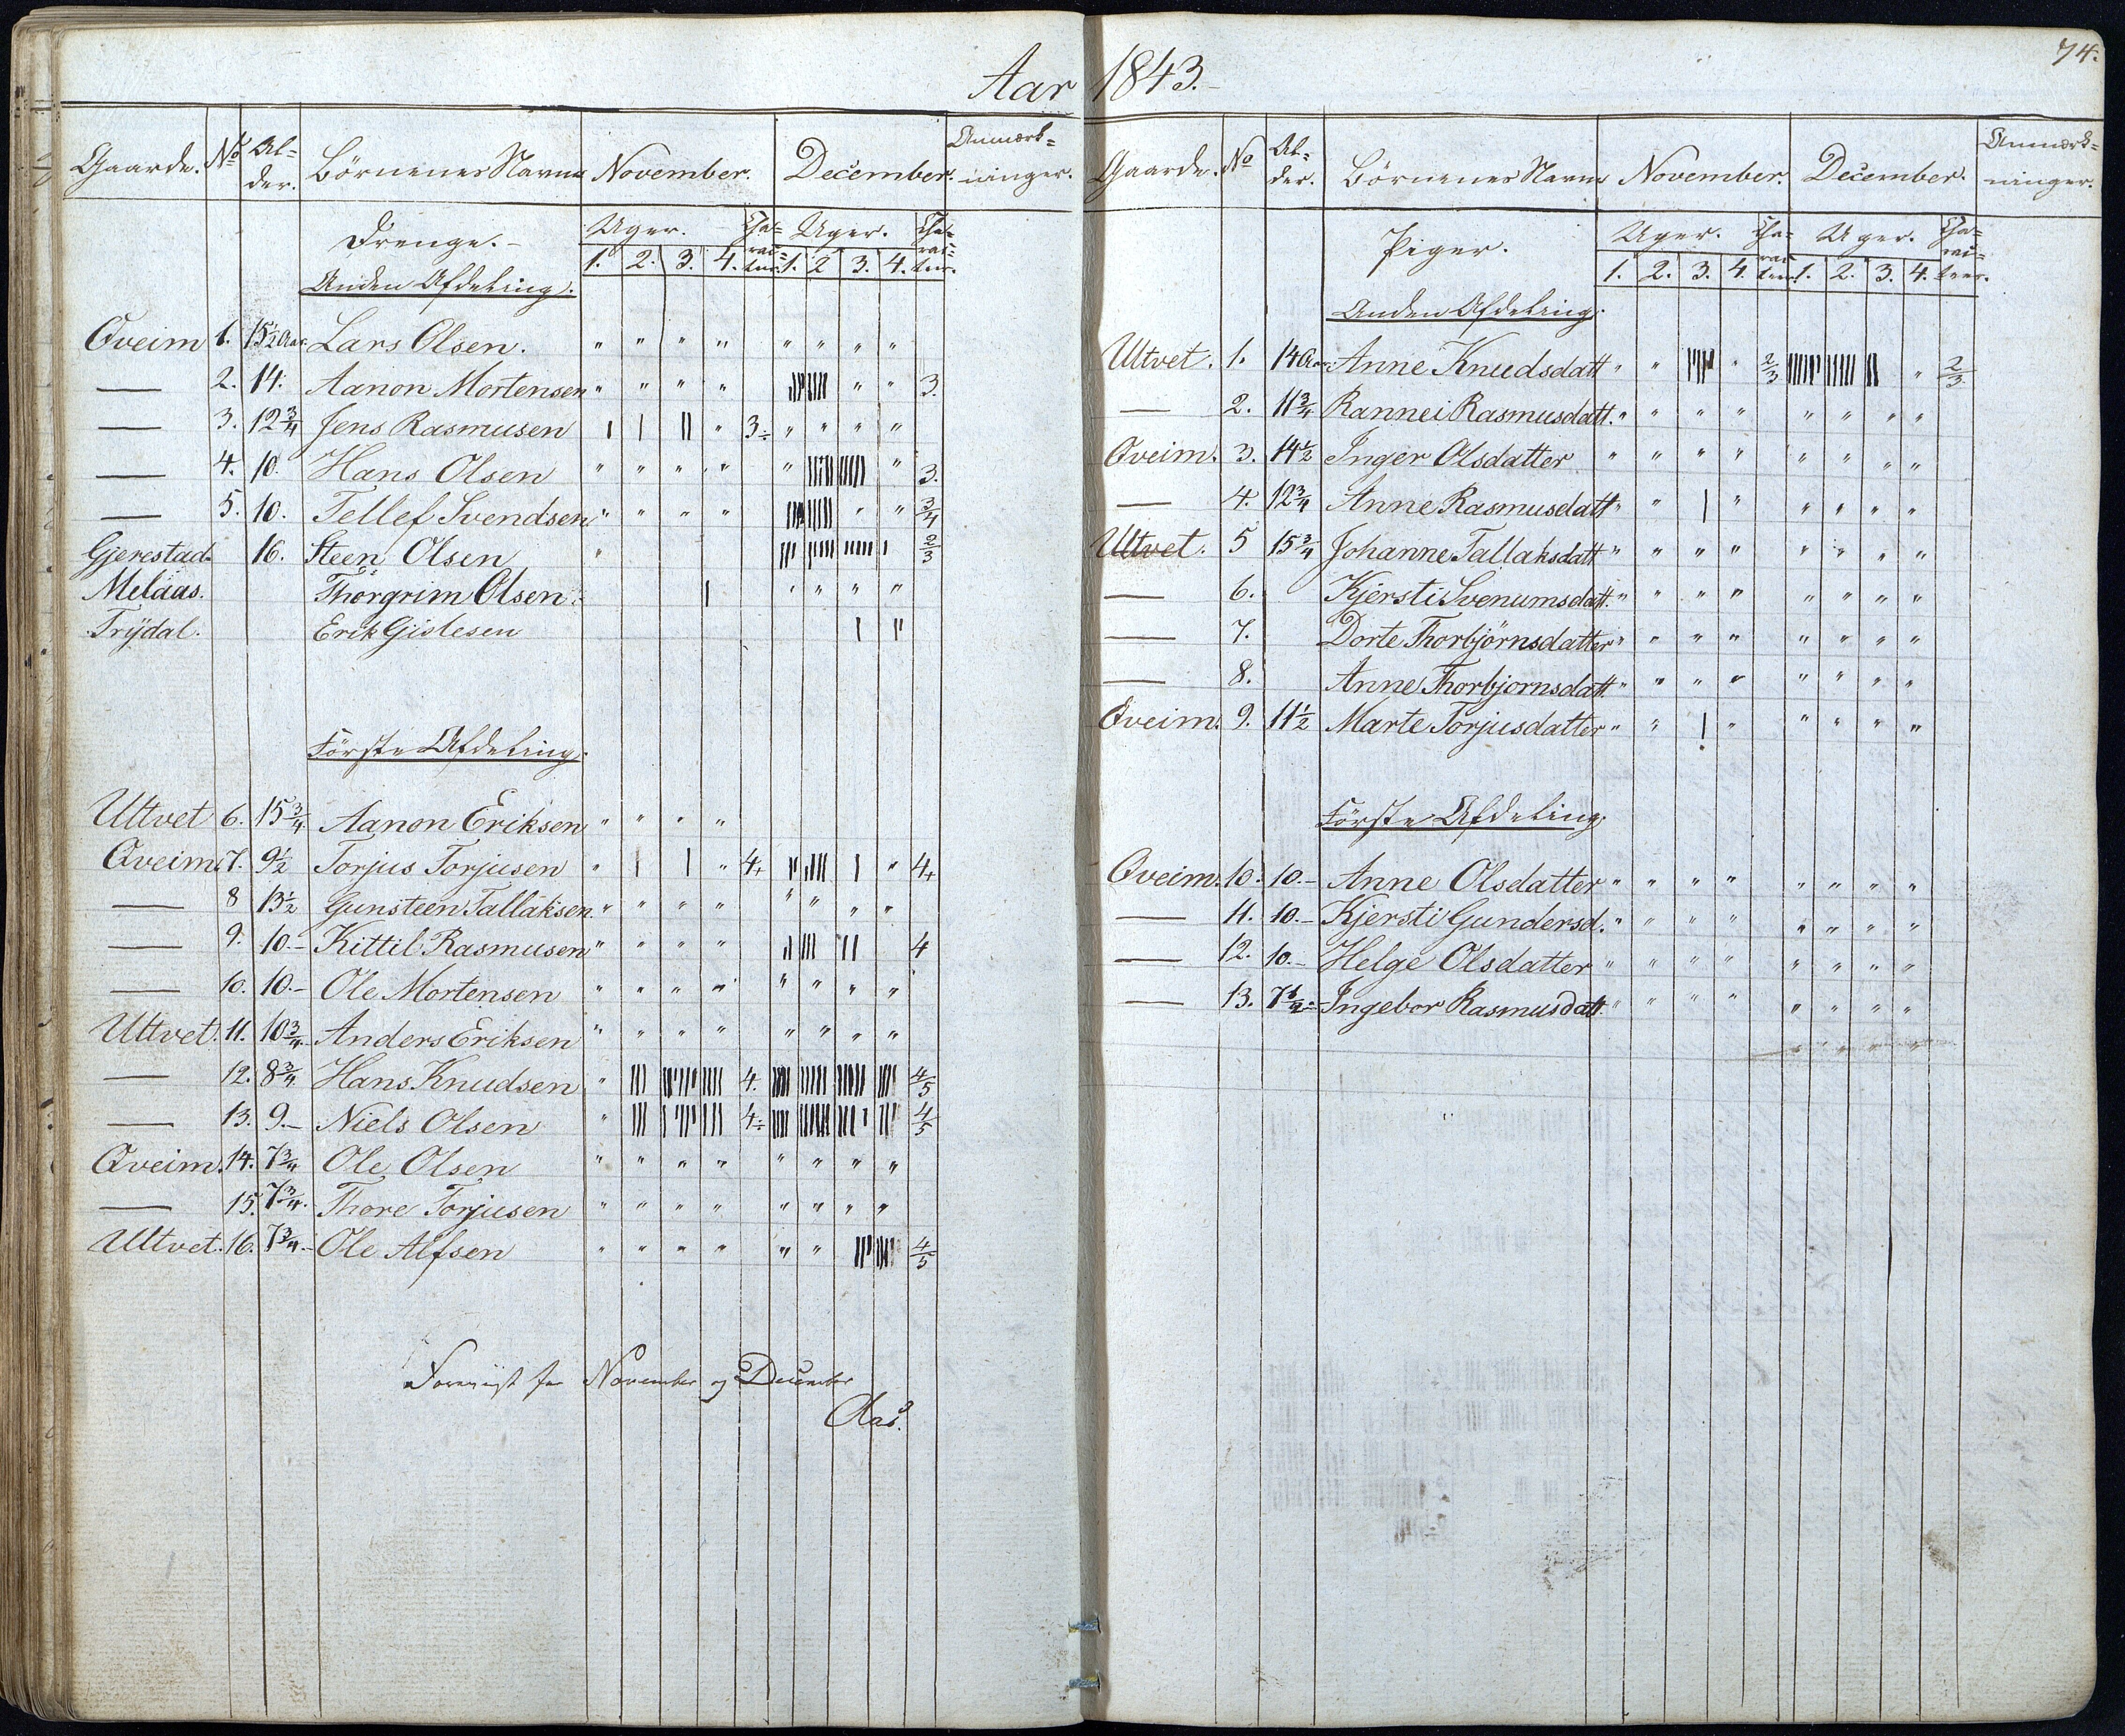 Aar 1843.
74.
Gaarde. No Al-der. Börnenes Navne November. December. Anmærk-ninger.
Drenge. Uger. Cha-rac-teer. Uger. Cha-rac-teer.
1. 2. 3. 4. 1. 2 3. 4.
Anden Afdeling.
Øveim 1. 15½ Aar. Lars Olsen. " " " " " " " "
— 2. 14. Aanon Mortensen " " " " |||| |||| " " 3.
— 3. 12¾ Jens Rasmusen | | || " 3÷ " " " "
— 4. 10. Hans Olsen " " " " " ||||| ||||| " 3.
— 5. 10. Tellef Svendsen " " " " |||| ||||| " " 3/4
Gjerestad 16. Steen Olsen " |||| ||||| ||||| | 2/3
Melaas. Thorgrim Olsen. | " " " "
Trÿdal. Erik Gislesen | ||
Förste Afdeling.
Ultvet 6. 15¾ Aanon Eriksen " " " "
Øveim 7. 9½ Torjus Torjusen " | | " 4+ || |||| | " 4+
— 8 13½ Gunsteen Tallaksen. " " " " " " " "
— 9. 10.- Kittil Rasmusen " " " " || ||| || 4
— 10. 10.- Ole Mortensen " " " " " " " "
Ultvet. 11. 10¾ Anders Eriksen " " " " " " " "
— 12. 8¾ Hans Knudsen " ||| ||||| |||| 4. ||||| ||||| ||||| |||| 4/5
— 13. 9.- Niels Olsen " ||| ||||| ||| 4÷ |||| ||||| |||| ||| 4/5
Øveim. 14. 7¾ Ole Olsen " " " " " " " "
— 15. 7¾ Thore Torjusen " " " " " " " "
Ultvet. 16. 7¾ Ole Alfsen " " " " " " ||| |||| 4/5
Foreviist for November og December
Aas.
Gaarde. No Al-der. Börnenes Navne November. December. Anmærk-ninger.
Piger. Uger. Cha-rac-teer. Uger. Cha-rac-teer.
1. 2. 3. 4. 1. 2. 3. 4.
Anden Afdeling.
Ultvet. 1. 14 Aar Anne Knudsdatt " " ||||| " 2/3 ||||| ||||| ||| " 2/3
— 2. 11¾ Rannei Rasmusdatt. " " " " " " " "
Øveim. 3. 14½ Inger Olsdatter " " " " " " " "
— 4. 12¾ Anne Rasmusdatt " " | " " " " "
Ultvet. 5 15¾ Johanne Tallaksdatt " " " " " " " "
— 6. Kjersti Svenumsdatt. " " " " " " " "
— 7. Dorte Thorbjörnsdatter " " " " " " " "
— 8. Anne Thorbjornsdatt. " " " " " " " "
Øveim. 9. 11½ Marte Torjusdatter " " | " " " " "
Förste Afdeling.
Øveim. 10. 10.- Anne Olsdatter " " " " " " " "
— 11. 10.- Kjersti Gundersd. " " " " " " " "
— 12. 10.- Helge Olsdatter " " " " " " " "
— 13. 7½ Ingebor Rasmusdatt. " " " " " " " "